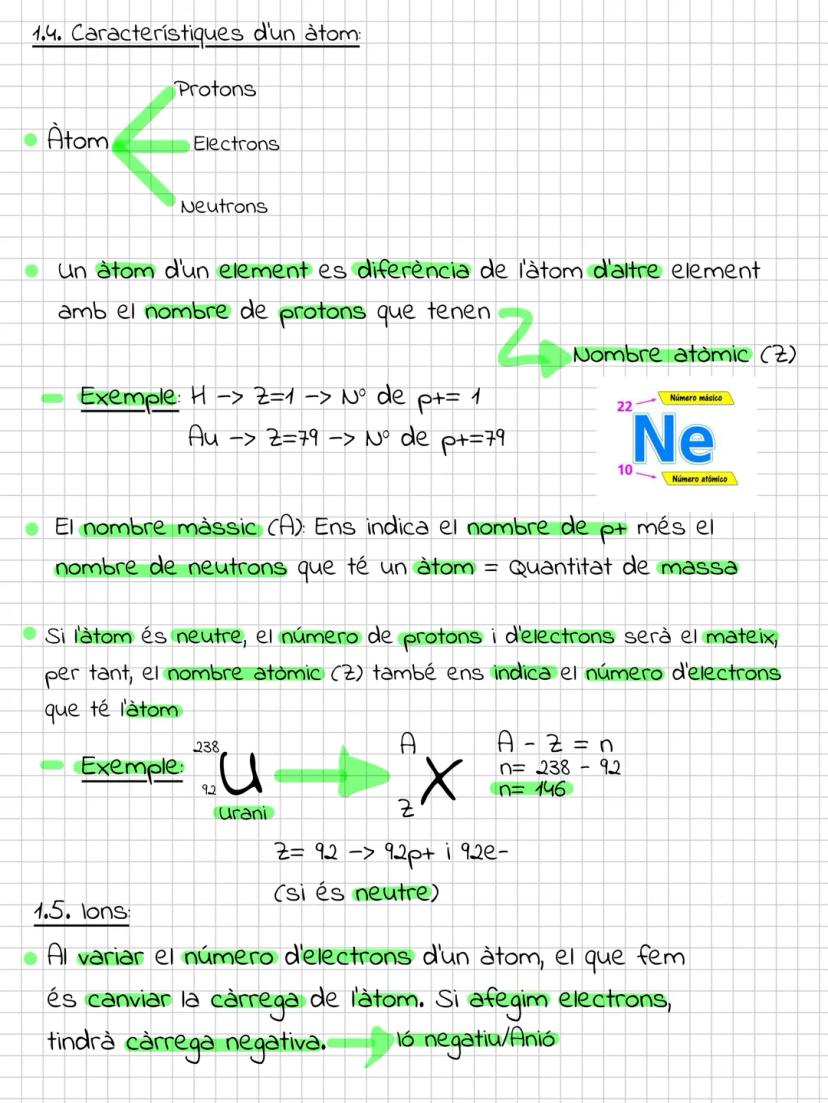 1.4. Característiques d'un àtom:
Protons
• Àtom
Electrons
Neutrons
• Un àtom d'un element es diferència de l'àtom d'altre element
amb el nombre de protons que tenen
Nombre atòmic (Z)
- Exemple: H -> Z=1 -> Nº de p+= 1
Au -> Z=79 -> Nº de p+=79
22 Número másico
Ne
10 Número atómico
• El nombre màssic (A): Ens indica el nombre de p+ més el
nombre de neutrons que té un àtom = Quantitat de massa
• Si l'àtom és neutre, el número de protons i d'electrons serà el mateix,
per tant, el nombre atòmic (Z) també ens indica el número d'electrons
que té l'àtom
- Exemple: 238 92 U A Z X A - Z = n
n= 238 - 92
n= 146
Urani
Z= 92 -> 92p+ i 92e-
(si és neutre)
1.5. Ions:
• Al variar el número d'electrons d'un àtom, el que fem
és canviar la càrrega de l'àtom. Si afegim electrons,
tindrà càrrega negativa. Ió negatiu/Anió